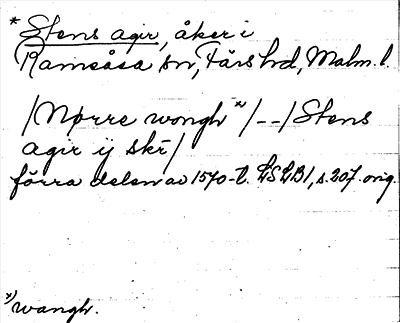 * Stens agir, åker i
Ramsåsa sn, Färs hd, Malm. l.
/Nørre wongh x)/--/Stens
agir ij skr/
förra delen av 1570-t. LSLB1, s. 207. orig.
x) wangh.